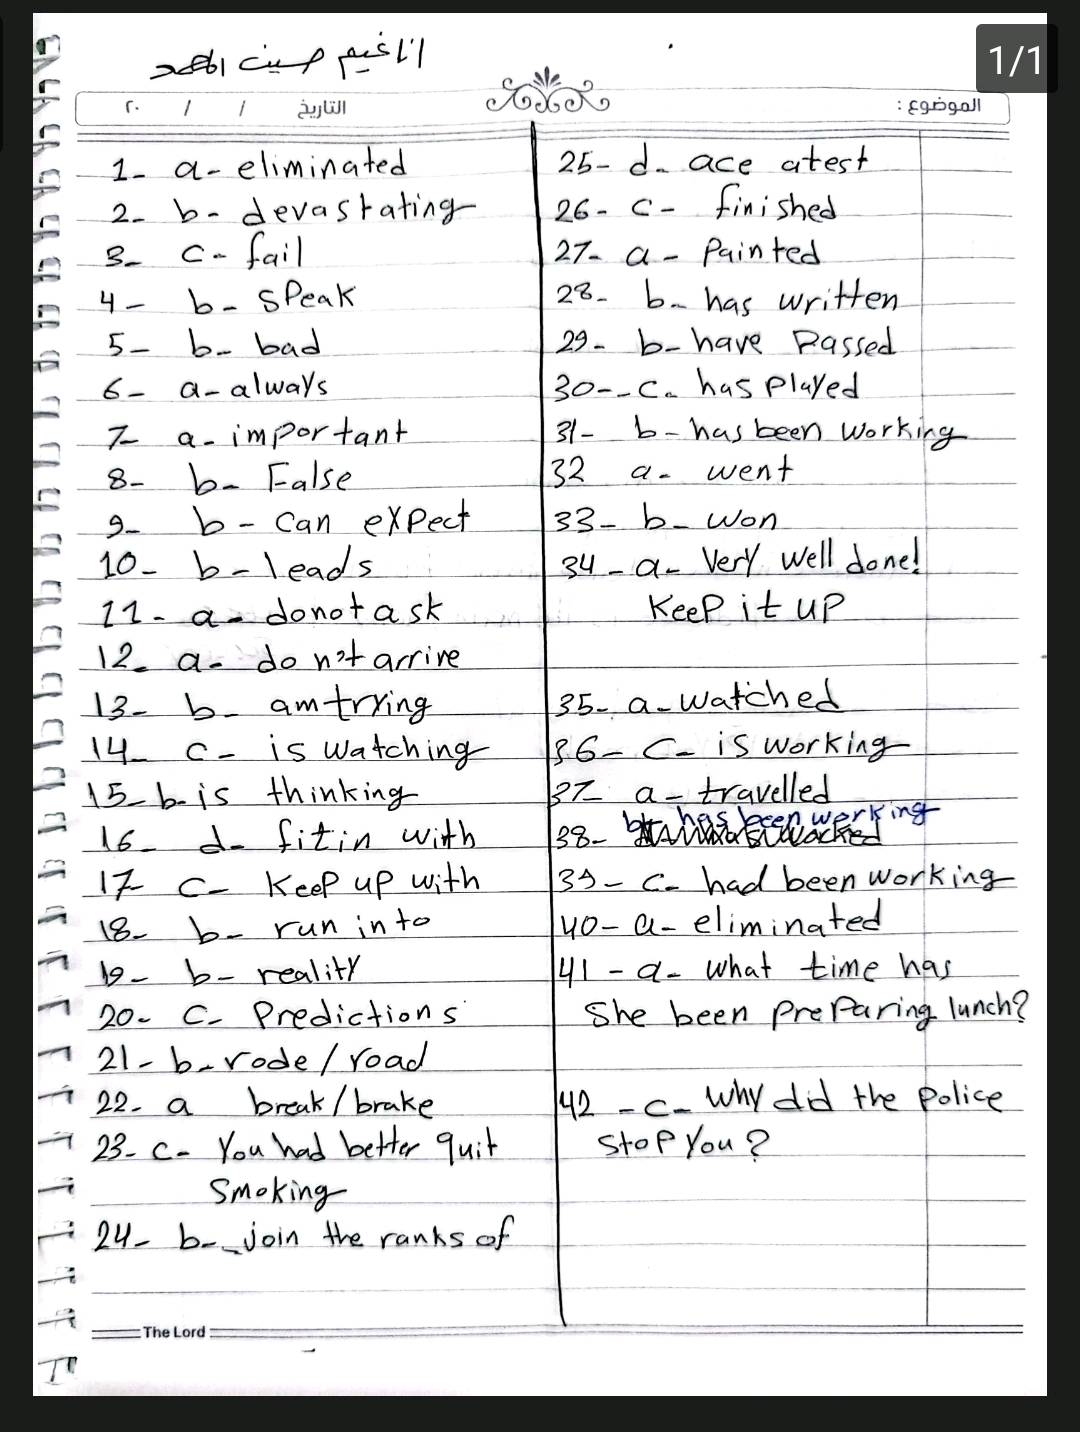 1/1
انا غيم حسين
الموضوع :
التاريخ / / ٢٠
1- a- eliminated
2- b- devastating
3- c- fail
4- b- speak
5- b- bad
6- a- always
7- a- important
8- b- False
9- b- can expect
10- b- leads
11- a- donot ask
12- a- don't arrive
13- b- am trying
14- c- is watching
15- b- is thinking
16- d- fit in with
17- c- Keep up with
18- b- run into
19- b- reality
20- c- Predictions
21- b- rode / road
22- a break / brake
23- c- You had better quit
Smoking
24- b- join the ranks of
25- d- ace atest
26- c- finished
27- a- Painted
28- b- has written
29- b- have Passed
30-- c- has Played
31- b- has been working
32 a- went
33- b- won
34- a- Very well done!
Keep it up
35- a- watched
36- c- is working
37- a- travelled
38- b- has been working
39- c- had been working
40- a- eliminated
41- a- what time has
She been preparing lunch?
42 - c- Why did the police
Stop You?
The Lord